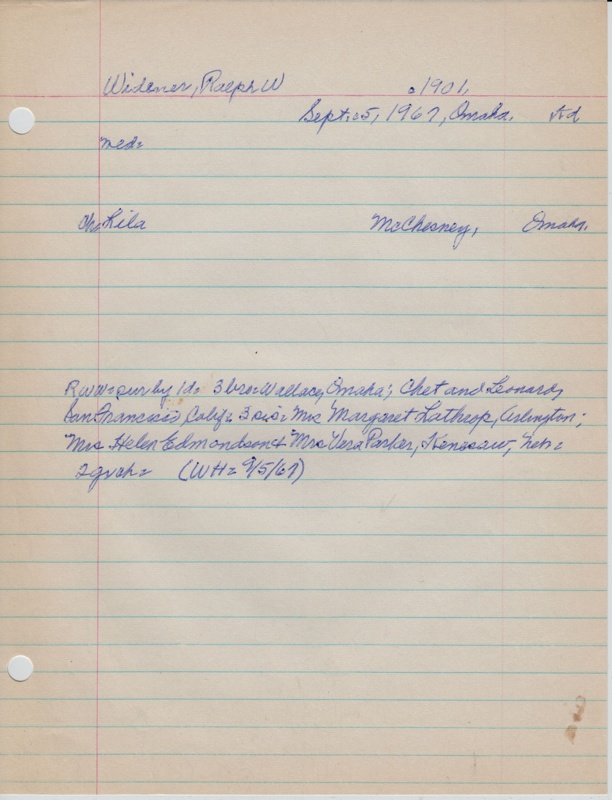 Widener, Ralph W c1901,
Sept. 5, 1967, Omaha,
med:
Ch: Lila McChesney, Omaha.
RWW: sur by 1d: 3 bro: Wallace, Omaha; Chet and Leonard,
San Francisco, Calif: 3 sis: Mrs Margaret Lathrop, Arlington;
Mrs Helen Edmondson & Mrs Vera Parker, Kenesaw, Neb:
2 grch: (WH: 9/5/67)